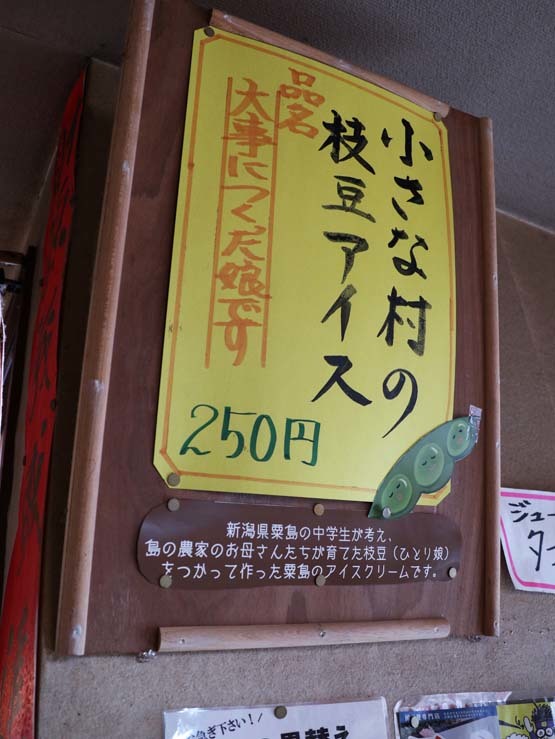 小さな村の
枝豆アイス
品名
大事につくった娘です
250円
新潟県粟島の中学生が考え、
島の農家のお母さんたちが育てた枝豆（ひとり娘）
をつかって作った粟島のアイスクリームです。
ジュー
急ぎ下さい！